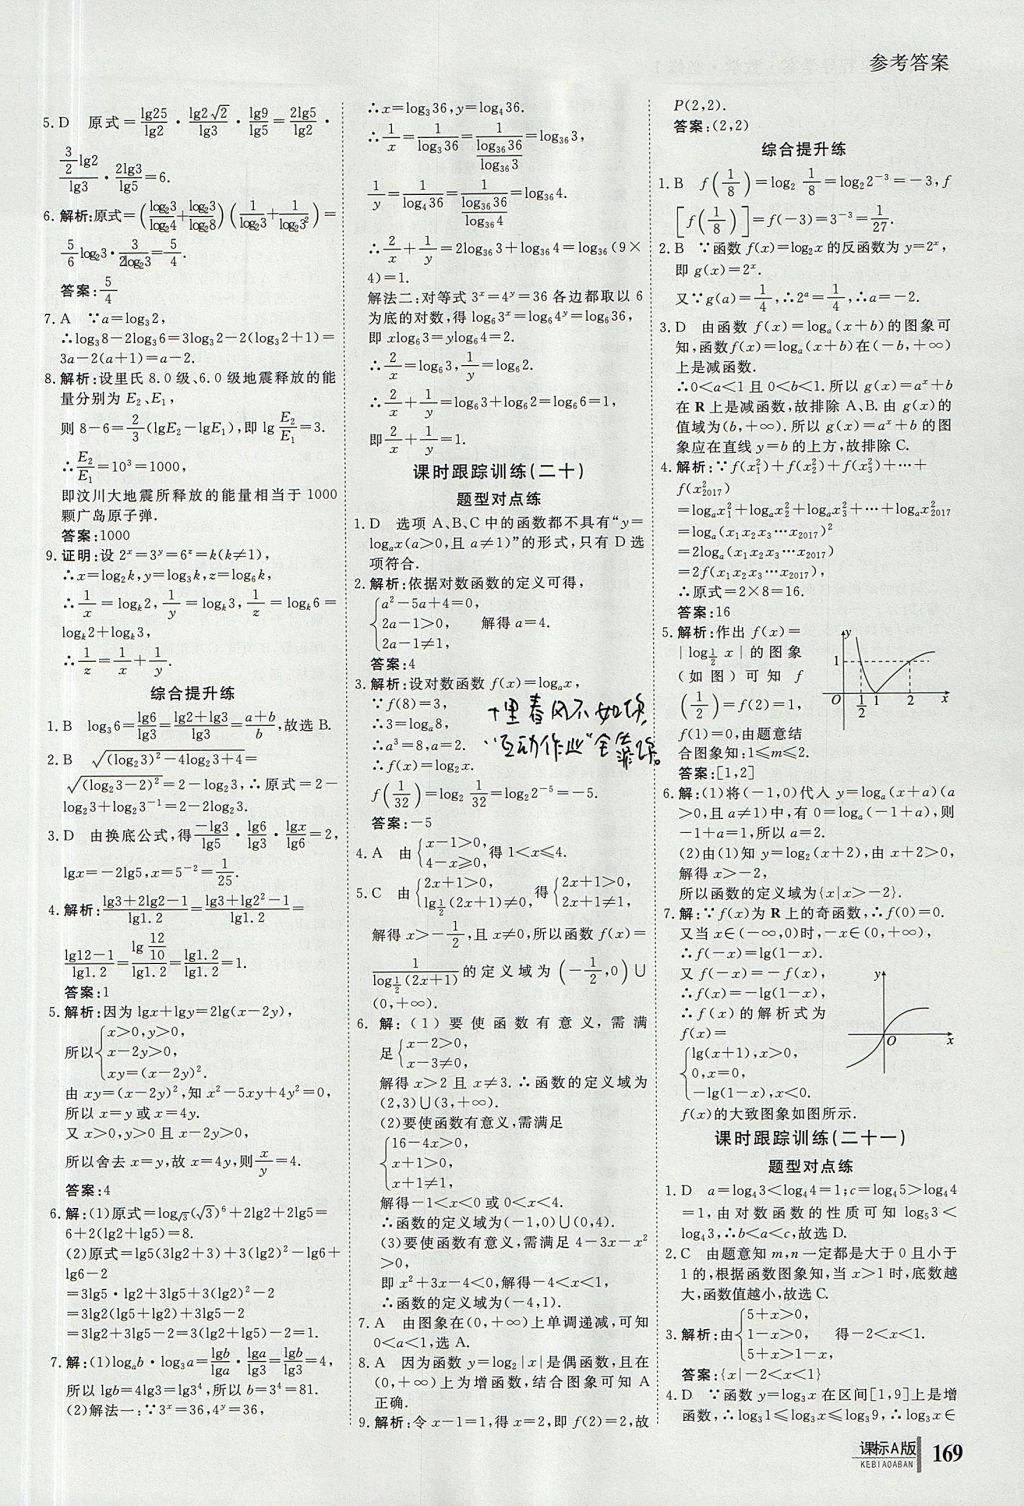 参考答案
5. D 原式=lg25/lg2·lg2√2/lg3·lg9/lg5=2lg5/lg2·
(3/2 lg2)/lg3·2lg3/lg5=6.
6. 解析:原式=(log₂3/log₂4+log₂3/log₂8)(1/log₂3+1/log₂3²)=
5/6 log₂3·3/(2log₂3)=5/4.
答案:5/4
7. A ∵a=log₃2,
∴log₃8-2log₃6=3log₃2-2(log₃2+1)=
3a-2(a+1)=a-2.
8. 解析:设里氏 8.0 级、6.0 级地震释放的能
量分别为 E₂、E₁,
则 8-6=2/3(lgE₂-lgE₁),即 lg E₂/E₁=3.
∴E₂/E₁=10³=1000,
即汶川大地震所释放的能量相当于 1000
颗广岛原子弹.
答案:1000
9. 证明:设 2ˣ=3ʸ=6ᶻ=k(k≠1),
∴x=log₂k,y=log₃k,z=log₆k,
∴1/x=logₖ2,1/y=logₖ3,1/z=logₖ6=
logₖ2+logₖ3,
∴1/z=1/x+1/y.
综合提升练
1. B log₃6=lg6/lg3=(lg2+lg3)/lg3=(a+b)/b,故选 B.
2. B √((log₂3)²-4log₂3+4)=
√((log₂3-2)²)=2-log₂3,∴原式=2-
log₂3+log₂3⁻¹=2-2log₂3.
3. D 由换底公式,得 -lg3/lg5·lg6/lg3·lgx/lg6=2,
lgx=-2lg5,x=5⁻²=1/25.
4. 解析:(lg3+2lg2-1)/lg1.2=(lg3+lg2²-1)/lg1.2=
(lg12-1)/lg1.2=(lg 12/10)/lg1.2=lg1.2/lg1.2=1.
答案:1
5. 解析:因为 lgx+lgy=2lg(x-2y),
所以{x>0,y>0,
x-2y>0,
xy=(x-2y)².
由 xy=(x-2y)²,知 x²-5xy+4y²=0,
所以 x=y 或 x=4y.
又 x>0,y>0 且 x-2y>0,
所以舍去 x=y,故 x=4y,则 x/y=4.
答案:4
6. 解:(1)原式=log√3(√3)⁶+2lg2+2lg5=
6+2(lg2+lg5)=8.
(2)原式=lg5(3lg2+3)+3(lg2)²-lg6+
lg6-2
=3lg5·lg2+3lg5+3(lg2)²-2
=3lg2(lg5+lg2)+3lg5-2
=3lg2+3lg5-2=3(lg2+lg5)-2=1.
7. 解:(1)logₐb·log₃a=lgb/lga·lga/lg3=lgb/lg3=4,
所以 lgb=4lg3=lg3⁴,所以 b=3⁴=81.
(2)解法一:∵3ˣ=36,4ʸ=36,
∴x=log₃36,y=log₄36.
∴1/x=1/log₃36=1/(log₃₆36/log₃₆3)=log₃₆3,
1/y=1/log₄36=1/(log₃₆36/log₃₆4)=log₃₆4.
∴2/x+1/y=2log₃₆3+log₃₆4=log₃₆(9×
4)=1.
解法二:对等式 3ˣ=4ʸ=36 各边都取以 6
为底的对数,得 log₆3ˣ=log₆4ʸ=log₆36,
即 xlog₆3=ylog₆4=2.
∴2/x=log₆3,1/y=log₆2.
∴2/x+1/y=log₆3+log₆2=log₆6=1,
即2/x+1/y=1.
课时跟踪训练(二十)
题型对点练
1. D 选项 A、B、C 中的函数都不具有“y=
logₐx(a>0,且 a≠1)”的形式,只有 D 选
项符合.
2. 解析:依据对数函数的定义可得,
{a²-5a+4=0,
2a-1>0, 解得 a=4.
2a-1≠1,
答案:4
3. 解析:设对数函数 f(x)=logₐx,
∵f(8)=3,
∴3=logₐ8,
∴a³=8,a=2.
∴f(x)=log₂x.
f(1/32)=log₂ 1/32=log₂2⁻⁵=-5.
答案:-5
十里春风不如你
“互动作业”全靠你。
4. A 由{x-1>0,
4-x≥0,得 1<x≤4.
5. C 由{2x+1>0,
lg½(2x+1)≠0, 得{2x+1>0,
2x+1≠1,
解得 x>-1/2,且 x≠0,所以函数 f(x)=
1/log½(2x+1)的定义域为(-1/2,0)∪
(0,+∞).
6. 解:(1)要使函数有意义,需满
足{x-2>0,
x-3≠0.
解得 x>2 且 x≠3.∴函数的定义域为
(2,3)∪(3,+∞).
(2)要使函数有意义,需满足
{16-4x>0,
x+1>0,
x+1≠1,
解得-1<x<0 或 0<x<4.
∴函数的定义域为(-1,0)∪(0,4).
(3)要使函数有意义,需满足 4-3x-x²
>0,
即 x²+3x-4<0,解得-4<x<1,
∴函数的定义域为(-4,1).
7. A 由图象在(0,+∞)上单调递减,可知
0<a<1,选 A.
8. A 因为函数 y=log₂|x|是偶函数,且在
(0,+∞)上为增函数,结合图象可知 A
正确.
9. 解析:令 x-1=1,得 x=2,即 f(2)=2,故
P(2,2).
答案:(2,2)
综合提升练
1. B f(1/8)=log₂ 1/8=log₂2⁻³=-3,f
[f(1/8)]=f(-3)=3⁻³=1/27.
2. B ∵函数 f(x)=log₂x 的反函数为 y=2ˣ,
即 g(x)=2ˣ.
又∵g(a)=1/4,∴2ᵃ=1/4,∴a=-2.
3. D 由函数 f(x)=logₐ(x+b)的图象可
知,函数f(x)=logₐ(x+b)在(-b,+∞)
上是减函数.
∴0<a<1 且 0<b<1.所以 g(x)=aˣ+b
在 R 上是减函数,故排除 A、B.由 g(x)的
值域为(b,+∞).所以 g(x)=aˣ+b 的图
象应在直线 y=b 的上方,故排除 C.
4. 解析:∵f(x₁²)+f(x₂²)+f(x₃²)+…+
f(x₂₀₁₇²)
=logₐx₁²+logₐx₂²+logₐx₃²+…+logₐx₂₀₁₇²
=logₐ(x₁x₂x₃…x₂₀₁₇)²
=2logₐ(x₁x₂x₃…x₂₀₁₇)
=2f(x₁x₂x₃…x₂₀₁₇)
∴原式=2×8=16.
答案:16
5. 解析:作出 f(x)=
|log½ x|的图象
(如图)可知 f
(1/2)=f(2)=1,
f(1)=0,由题意结
合图象知:1≤m≤2.
答案:[1,2]
y
1
O 1/2 1 2 x
6. 解:(1)将(-1,0)代入 y=logₐ(x+a)(a
>0,且 a≠1)中,有 0=logₐ(-1+a),则
-1+a=1,所以 a=2.
(2)由(1)知 y=log₂(x+2),由 x+2>0,
解得 x>-2,
所以函数的定义域为{x|x>-2}.
7. 解:∵f(x)为 R 上的奇函数,∴f(0)=0.
又当 x∈(-∞,0)时,-x∈(0,+∞),
∴f(-x)=lg(1-x).
又 f(-x)=-f(x),
∴f(x)=-lg(1-x),
∴f(x)的解析式为
f(x)=
{lg(x+1),x>0,
0,x=0,
-lg(1-x),x<0.
f(x)的大致图象如图所示.
y
O x
课时跟踪训练(二十一)
题型对点练
1. D a=log₄3<log₄4=1;c=log₄5>log₄4
=1,由对数函数的性质可知 log₅3<
log₄3,∴b<a<c,故选 D.
2. C 由题意知 m,n 一定都是大于 0 且小于
1 的,根据函数图象知,当 x>1 时,底数越
大,函数值越小,故选 C.
3. 解析:由{5+x>0,
1-x>0, 得-2<x<1.
5+x>1-x,
答案:{x|-2<x<1}
4. D ∵函数 y=log₃x 在区间[1,9]上是增
函数,∴log₃1≤log₃x≤log₃9,∴log₃x∈
课标A版 169
KEBIAOABAN